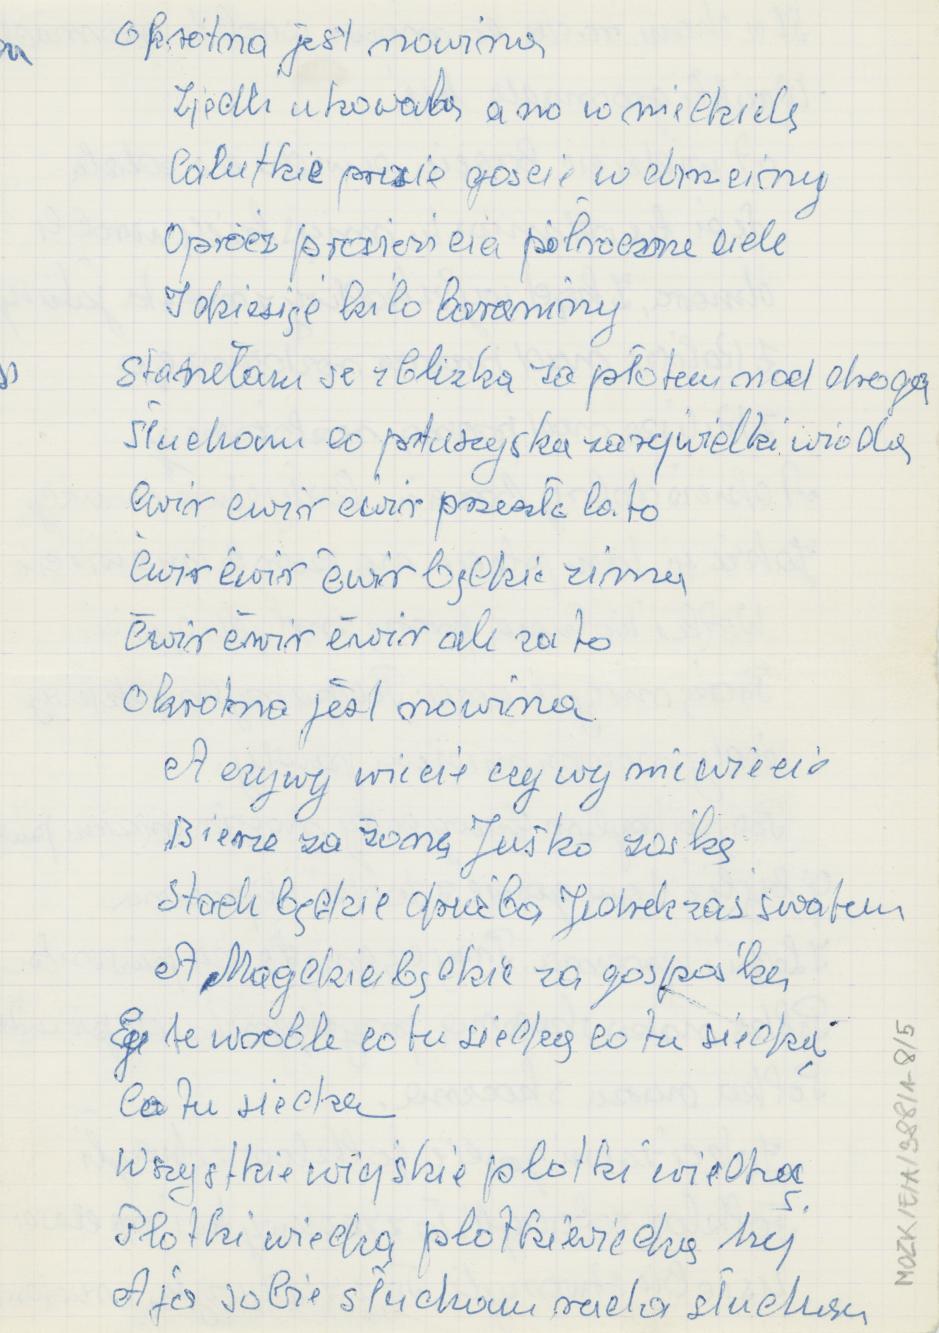 Okrotna jest nowina
Zjedli u kowala ano w niedziele
Calutkie prosie goscie w drzeciny
Oprócz prosięcia półroczne ciele
I dziesięć kilo baraniny
Stanełam se z blizka za płotem nad drogą
Słucham co ptuszyska zarejwielki wiodą
Ćwir ćwir ćwir przeszło lato
Ćwir ćwir ćwir będzie zima
Ćwir ćwir ćwir ale za to
Okrotna jest nowina
A czy wy wiecie czy wy niewiecie
Bierze za żonę Juśko Zośkę
Stach będzie drużbą Jędrek zaś swatem
A Magdzia będzie za gosposką
Ej te wroble co tu siedzą co tu siedzą
Co tu siedzą
Wszystkie wiejskie plotki wiedzą
5.
Plotki wiedzą plotki wiedzą hej
A ja sobie słucham rada słucham
MOZK/E/A/3881/1-8/5